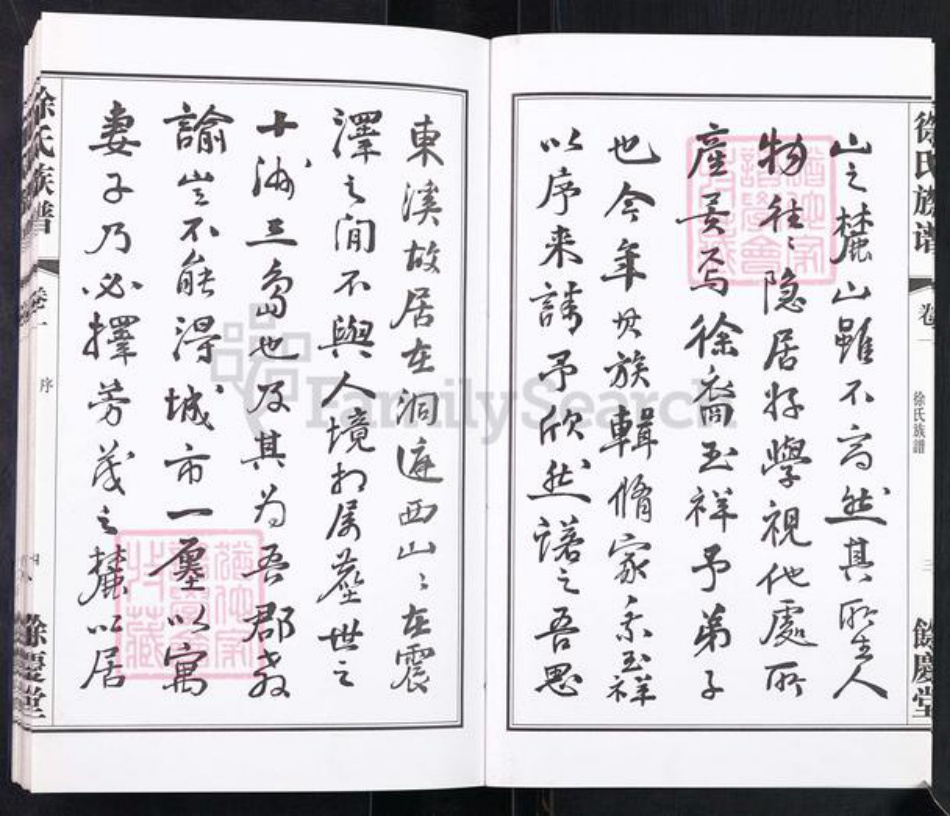 徐氏族譜
卷一
徐氏族譜
三
餘慶堂
山之麓山雖不高然其所生人
物往々隐居好學視他處所
產異焉徐裔玉祥予弟子
也今年其族輯脩家乘玉祥
以序来請予欣然諾之吾思
東溪故居在洞庭西山々在震
澤之間不與人境相属塵世之
十洲三島也及其为吾郡教
諭豈不能得城市一廛以寓
妻子乃必擇芳茂之麓以居
徐氏族譜
卷一
序
四
餘慶堂
FamilySearch